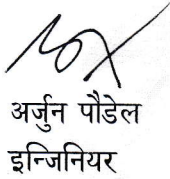 अर्जुन पौडेल
इन्जिनियर